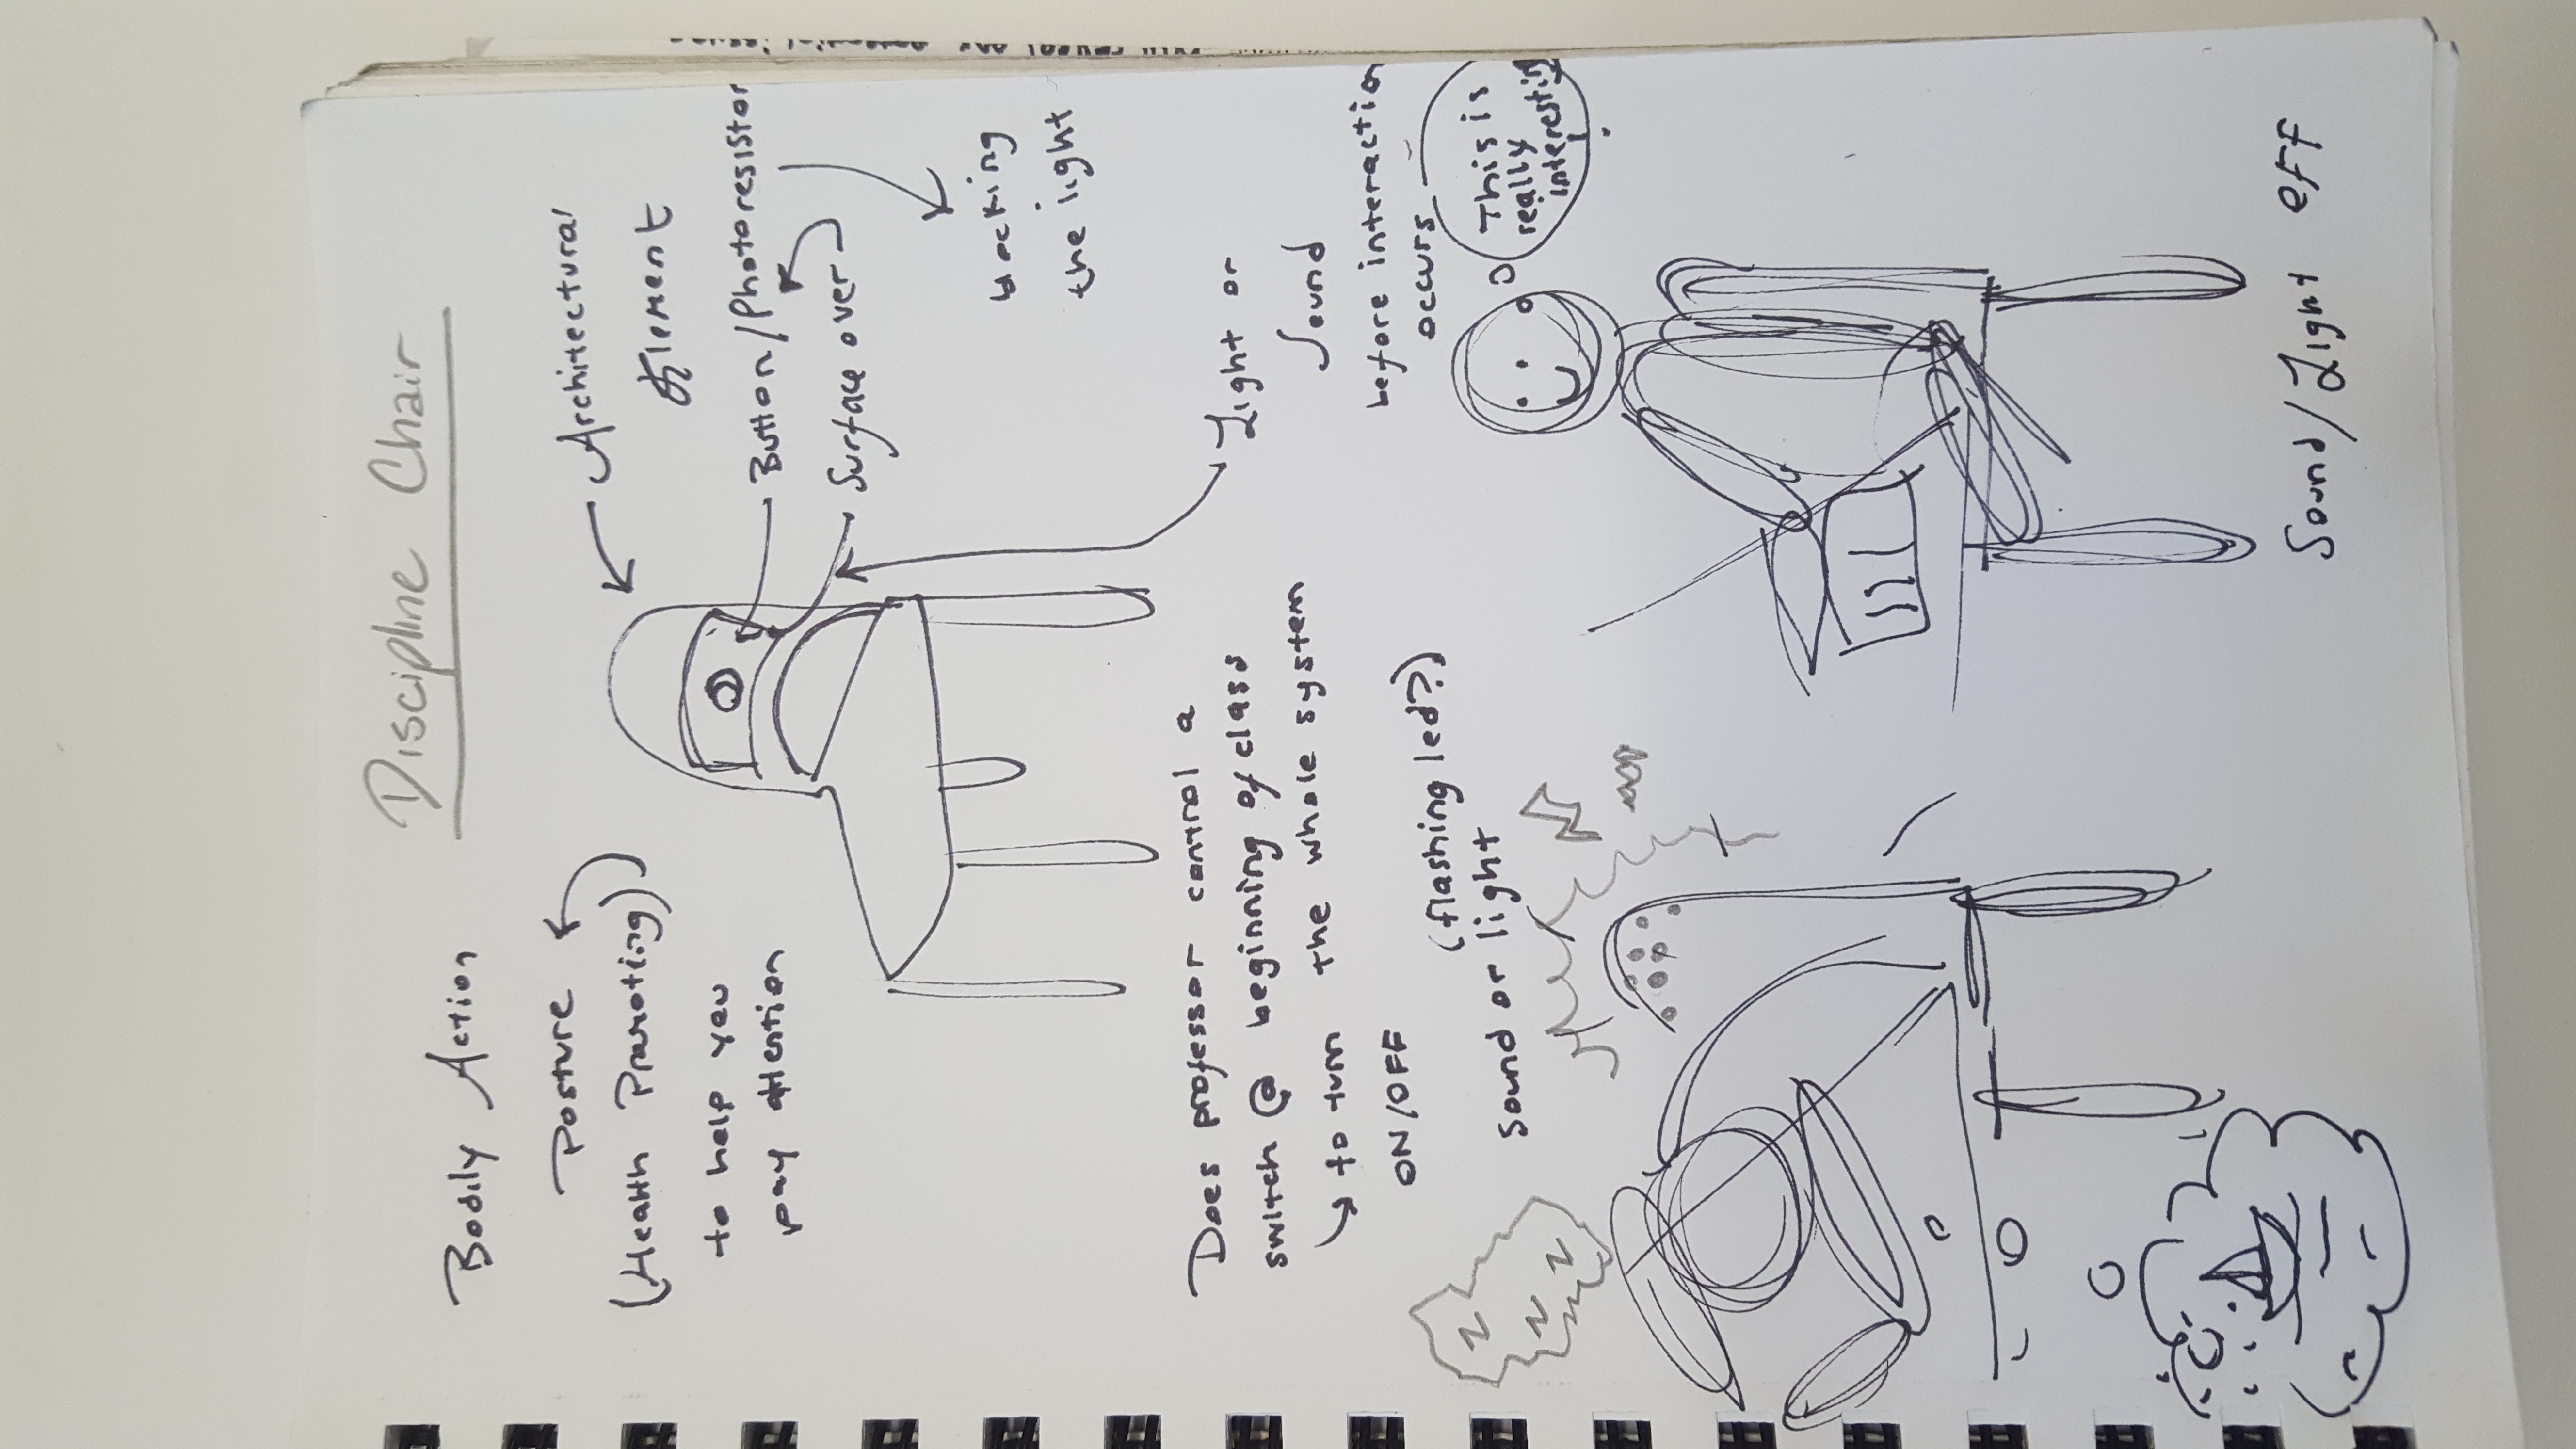 Discipline Chair
Bodily Action
Posture
(Health Promoting)
to help you
pay attention
Architectural
Element
Button/Photoresistor
Surface over
blocking
the light
Light or
Sound
before interaction
occurs
Does professor control a
switch @ beginning of class
to turn the whole system
ON/OFF
(flashing led?)
sound or light
Z
Z
Z
This is
really
interesting
Sound/Light off